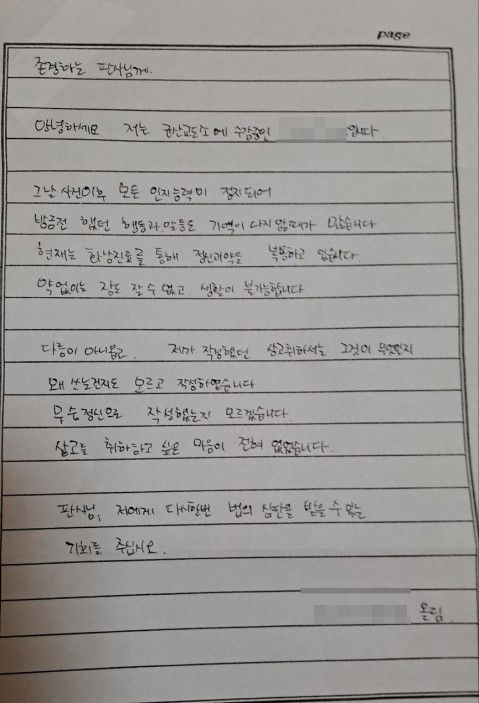 page
존경하는 판사님께.
안녕하세요 저는 군산교도소에 수감중인 입니다.
그날 사건이후 모든 인지능력이 정지되어
방금전 했던 행동과 말들도 기억이 나지 않을때가 많습니다
현재는 화상진료를 통해 정신과약을 복용하고 있습니다.
약 없이는 잠도 잘 수 없고, 생활이 불가능합니다
다름이 아니옵고. 제가 작성했던 상고취하서는 그것이 무엇인지
왜 쓰는건지도 모르고 작성하였습니다
무슨정신으로 작성했는지 모르겠습니다.
상고를 취하하고 싶은 마음이 전혀 없었습니다.
판사님, 저에게 다시한번 법의 심판을 받을 수 있는
기회를 주십시오.
올림.